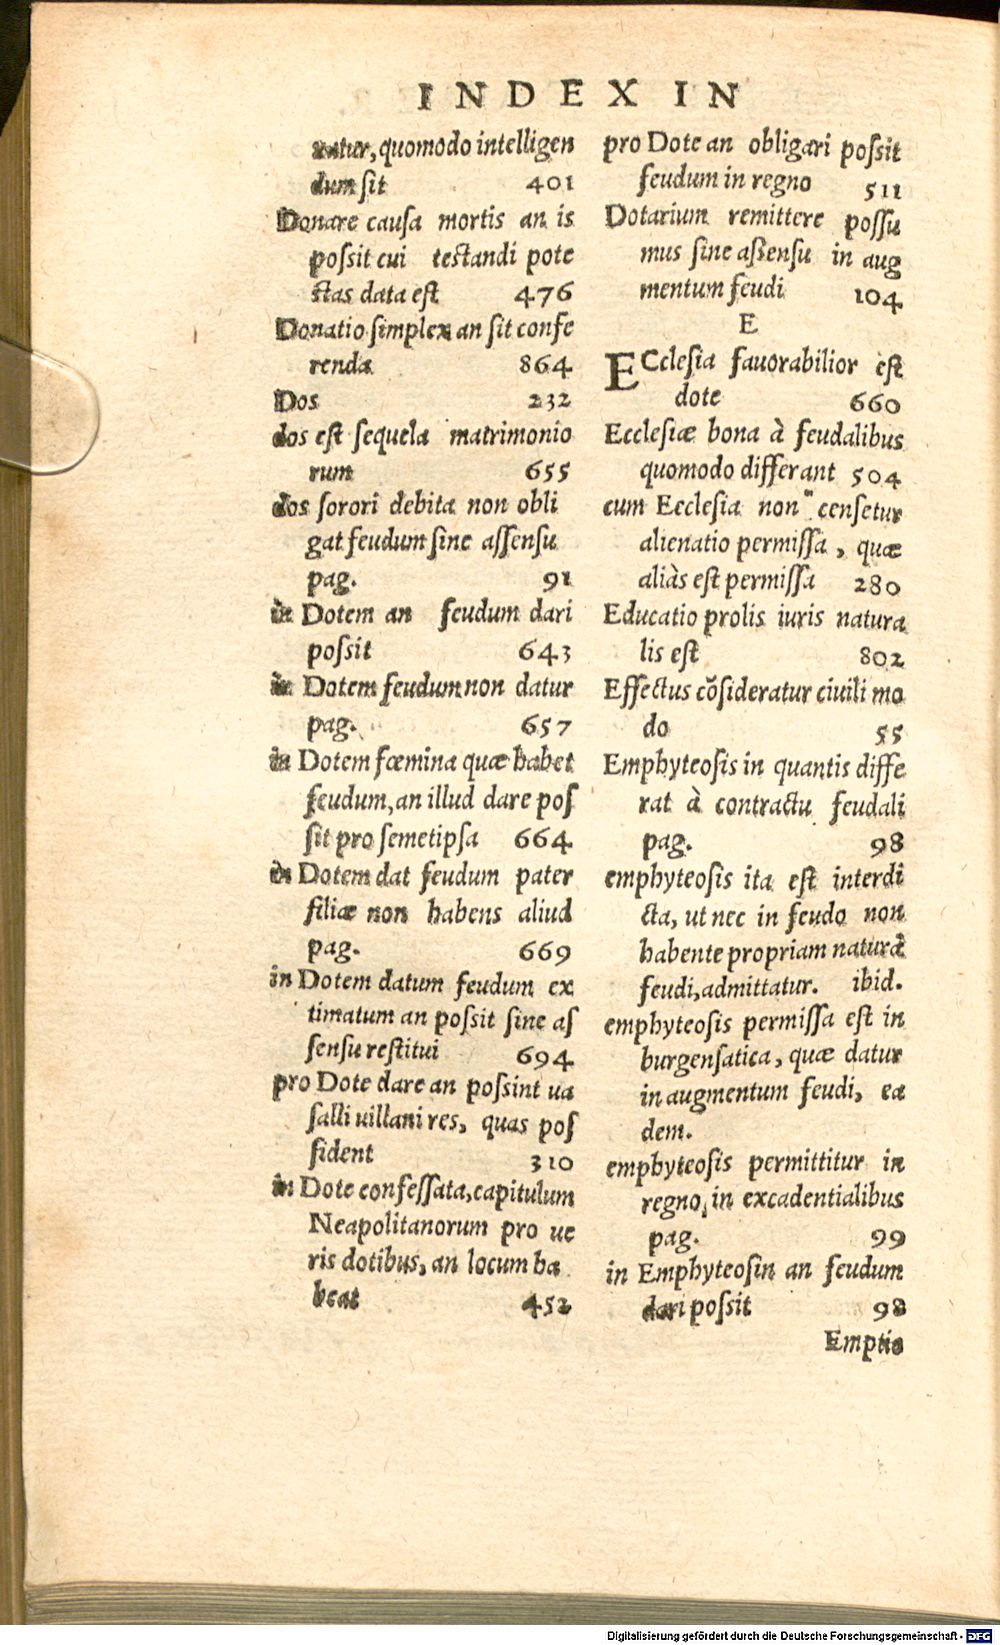 INDEX IN
natur, quomodo intelligen
dum sit 401
Donare cauſa mortis an is
poſsit cui teſtandi pote
ſtas data eſt 476
Donatio ſimplex an ſit confe
renda 864
Dos 232
dos eſt ſequela matrimonio
rum 655
dos ſorori debita non obli
gat feudum ſine aſſenſu
pag. 91
in Dotem an feudum dari
poſsit 643
in Dotem feudum non datur
pag. 657
in Dotem fœmina quæ habet
feudum, an illud dare poſ
ſit pro ſemetipſa 664
in Dotem dat feudum pater
filiæ non habens aliud
pag. 669
in Dotem datum feudum ex
timatum an poſsit ſine aſ
ſenſu reſtitui 694
pro Dote dare an poſsint ua
ſalli uillani res, quas poſ
ſident 310
in Dote confeſſata, capitulum
Neapolitanorum pro ue
ris dotibus, an locum ha
beat 452
pro Dote an obligari poſsit
feudum in regno 511
Dotarium remittere poſſu
mus ſine aſſenſu in aug
mentum feudi 104
E
ECcleſia fauorabilior eſt
dote 660
Eccleſiæ bona à feudalibus
quomodo differant 504
cum Eccleſia non cenſetur
alienatio permiſſa, quæ
aliàs eſt permiſſa 280
Educatio prolis iuris natura
lis eſt 802
Effectus cõſideratur ciuili mo
do 55
Emphyteoſis in quantis diffe
rat à contractu feudali
pag. 98
emphyteoſis ita eſt interdi
cta, ut nec in feudo non
habente propriam naturã
feudi, admittatur. ibid.
emphyteoſis permiſſa eſt in
burgenſatica, quæ datur
in augmentum feudi, ea
dem.
emphyteoſis permittitur in
regno, in excadentialibus
pag. 99
in Emphyteoſin an feudum
dari poſsit 98
Emptio
Digitalisierung gefördert durch die Deutsche Forschungsgemeinschaft - DFG